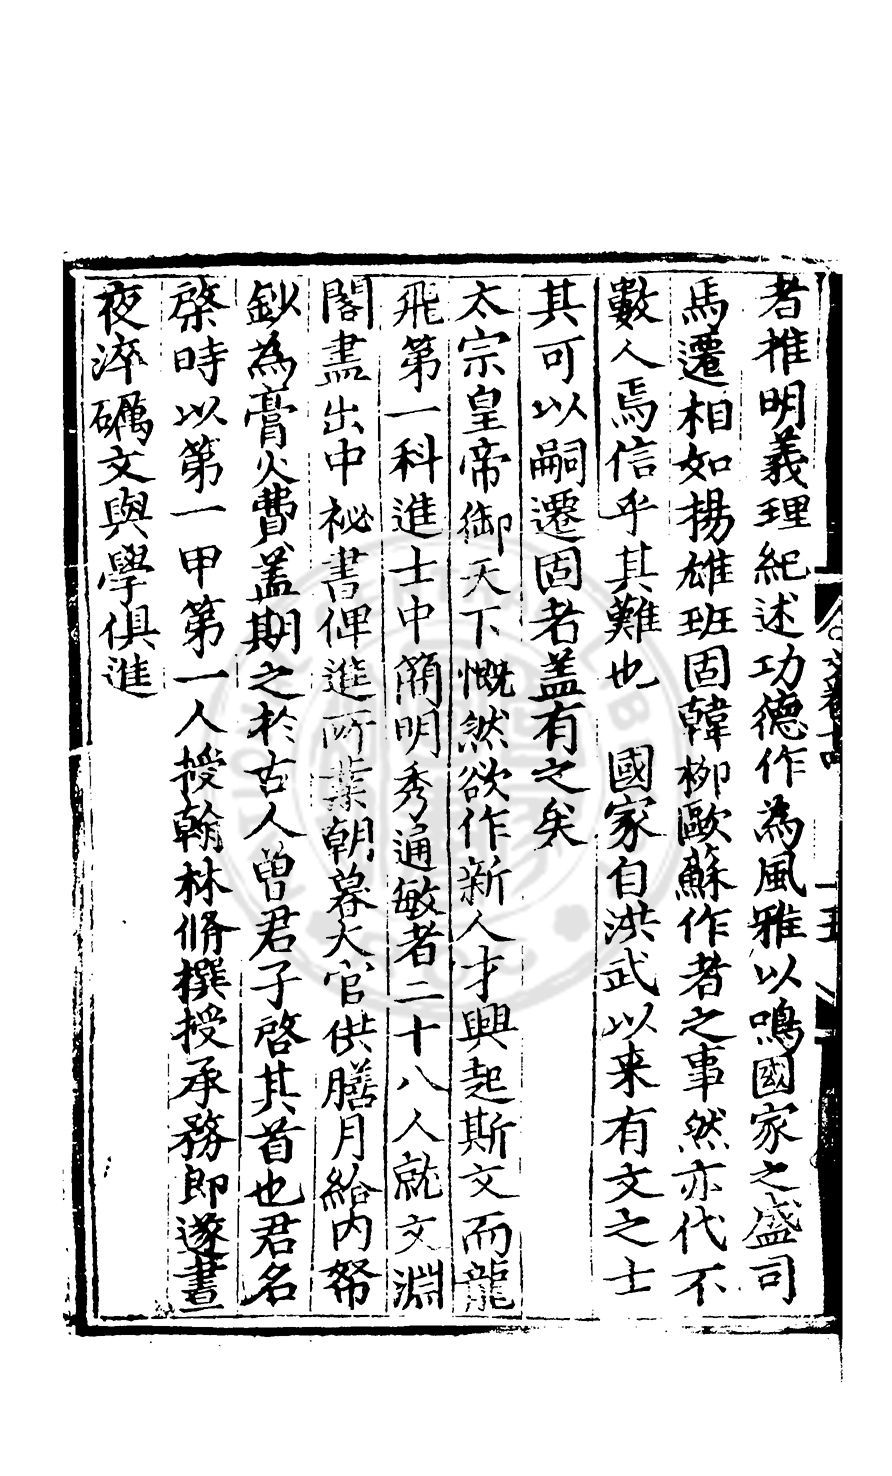 者推明義理紀述功德作為風雅以鳴國家之盛司
馬遷相如揚雄班固韓柳歐蘇作者之事然亦代不
數人焉信乎其難也　國家自洪武以来有文之士
其可以嗣遷固者盖有之矣
太宗皇帝御天下慨然欲作新人才興起斯文而龍
飛第一科進士中簡明秀通敏者二十八人就文淵
閣盡出中祕書俾進所業朝暮大官供膳月給內帑
鈔為膏火費盖期之於古人曽君子啓其首也君名
棨時以第一甲第一人授翰林脩撰授承務郎遂晝
夜淬礪文與學俱進